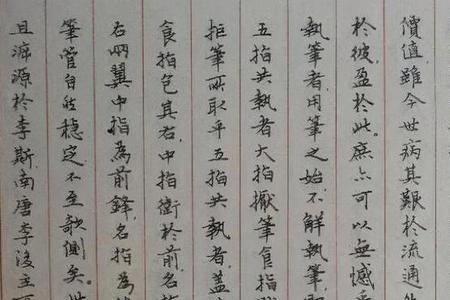 價值.雖今世病其艱於流通
於彼,盈於此.庶亦可以無憾
執筆者.用筆之始.不解執筆.
五指共執者大指擫筆食指
拒筆所取乎五指共執者.蓋
食指包其右.中指衝於前.名
右兩翼中指為前鋒.名指為
筆管自然穩定.不至欹側矣.
且溯源於李斯.南唐李後主